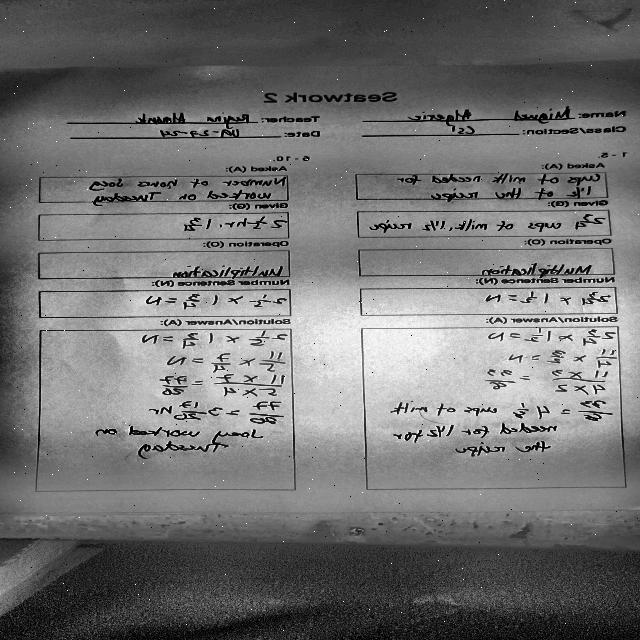 Seatwork 2
Name: Miguel
Class/Section:
Teacher: Regine
Date:
1 - 5.
Asked (A):
cups of milk needed for
1 1/2 of the recipe
Given (G):
2 3/4 cups of milk, 1 1/2 recipe
Operation (O):
Multiplication
Number Sentence (N):
2 3/4 x 1 1/2 = N
Solution/Answer (A):
2 3/4 x 1 1/2 = N
11/4 x 3/2 = N
11 x 3 / 4 x 2 = 33/8
33/8 = 4 1/8 cups of milk
needed for 1 1/2 for
the recipe
6 - 10.
Asked (A):
Number of hours Joey
worked on Tuesday
Given (G):
2 1/5 hr, 1 3/4
Operation (O):
Multiplication
Number Sentence (N):
2 1/5 x 1 3/4 = N
Solution/Answer (A):
2 1/5 x 1 3/4 = N
11/5 x 7/4 = N
11 x 7 / 5 x 4 = 77/20
77/20 = 3 17/20 hr
Joey worked on
Tuesday